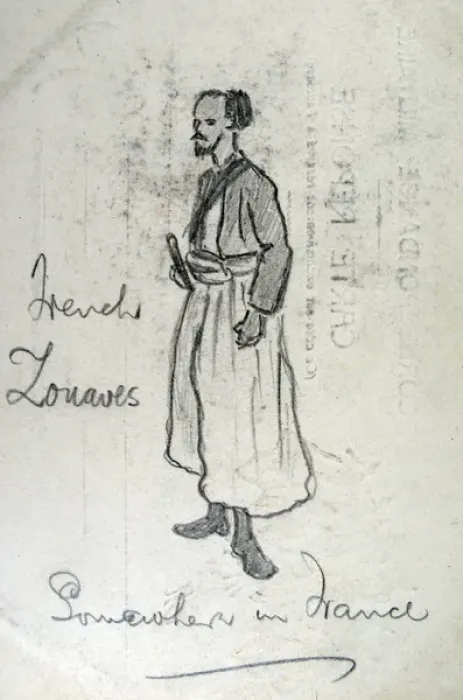 French
Zouaves
Somewhere in France
CARTE RÉPONSE